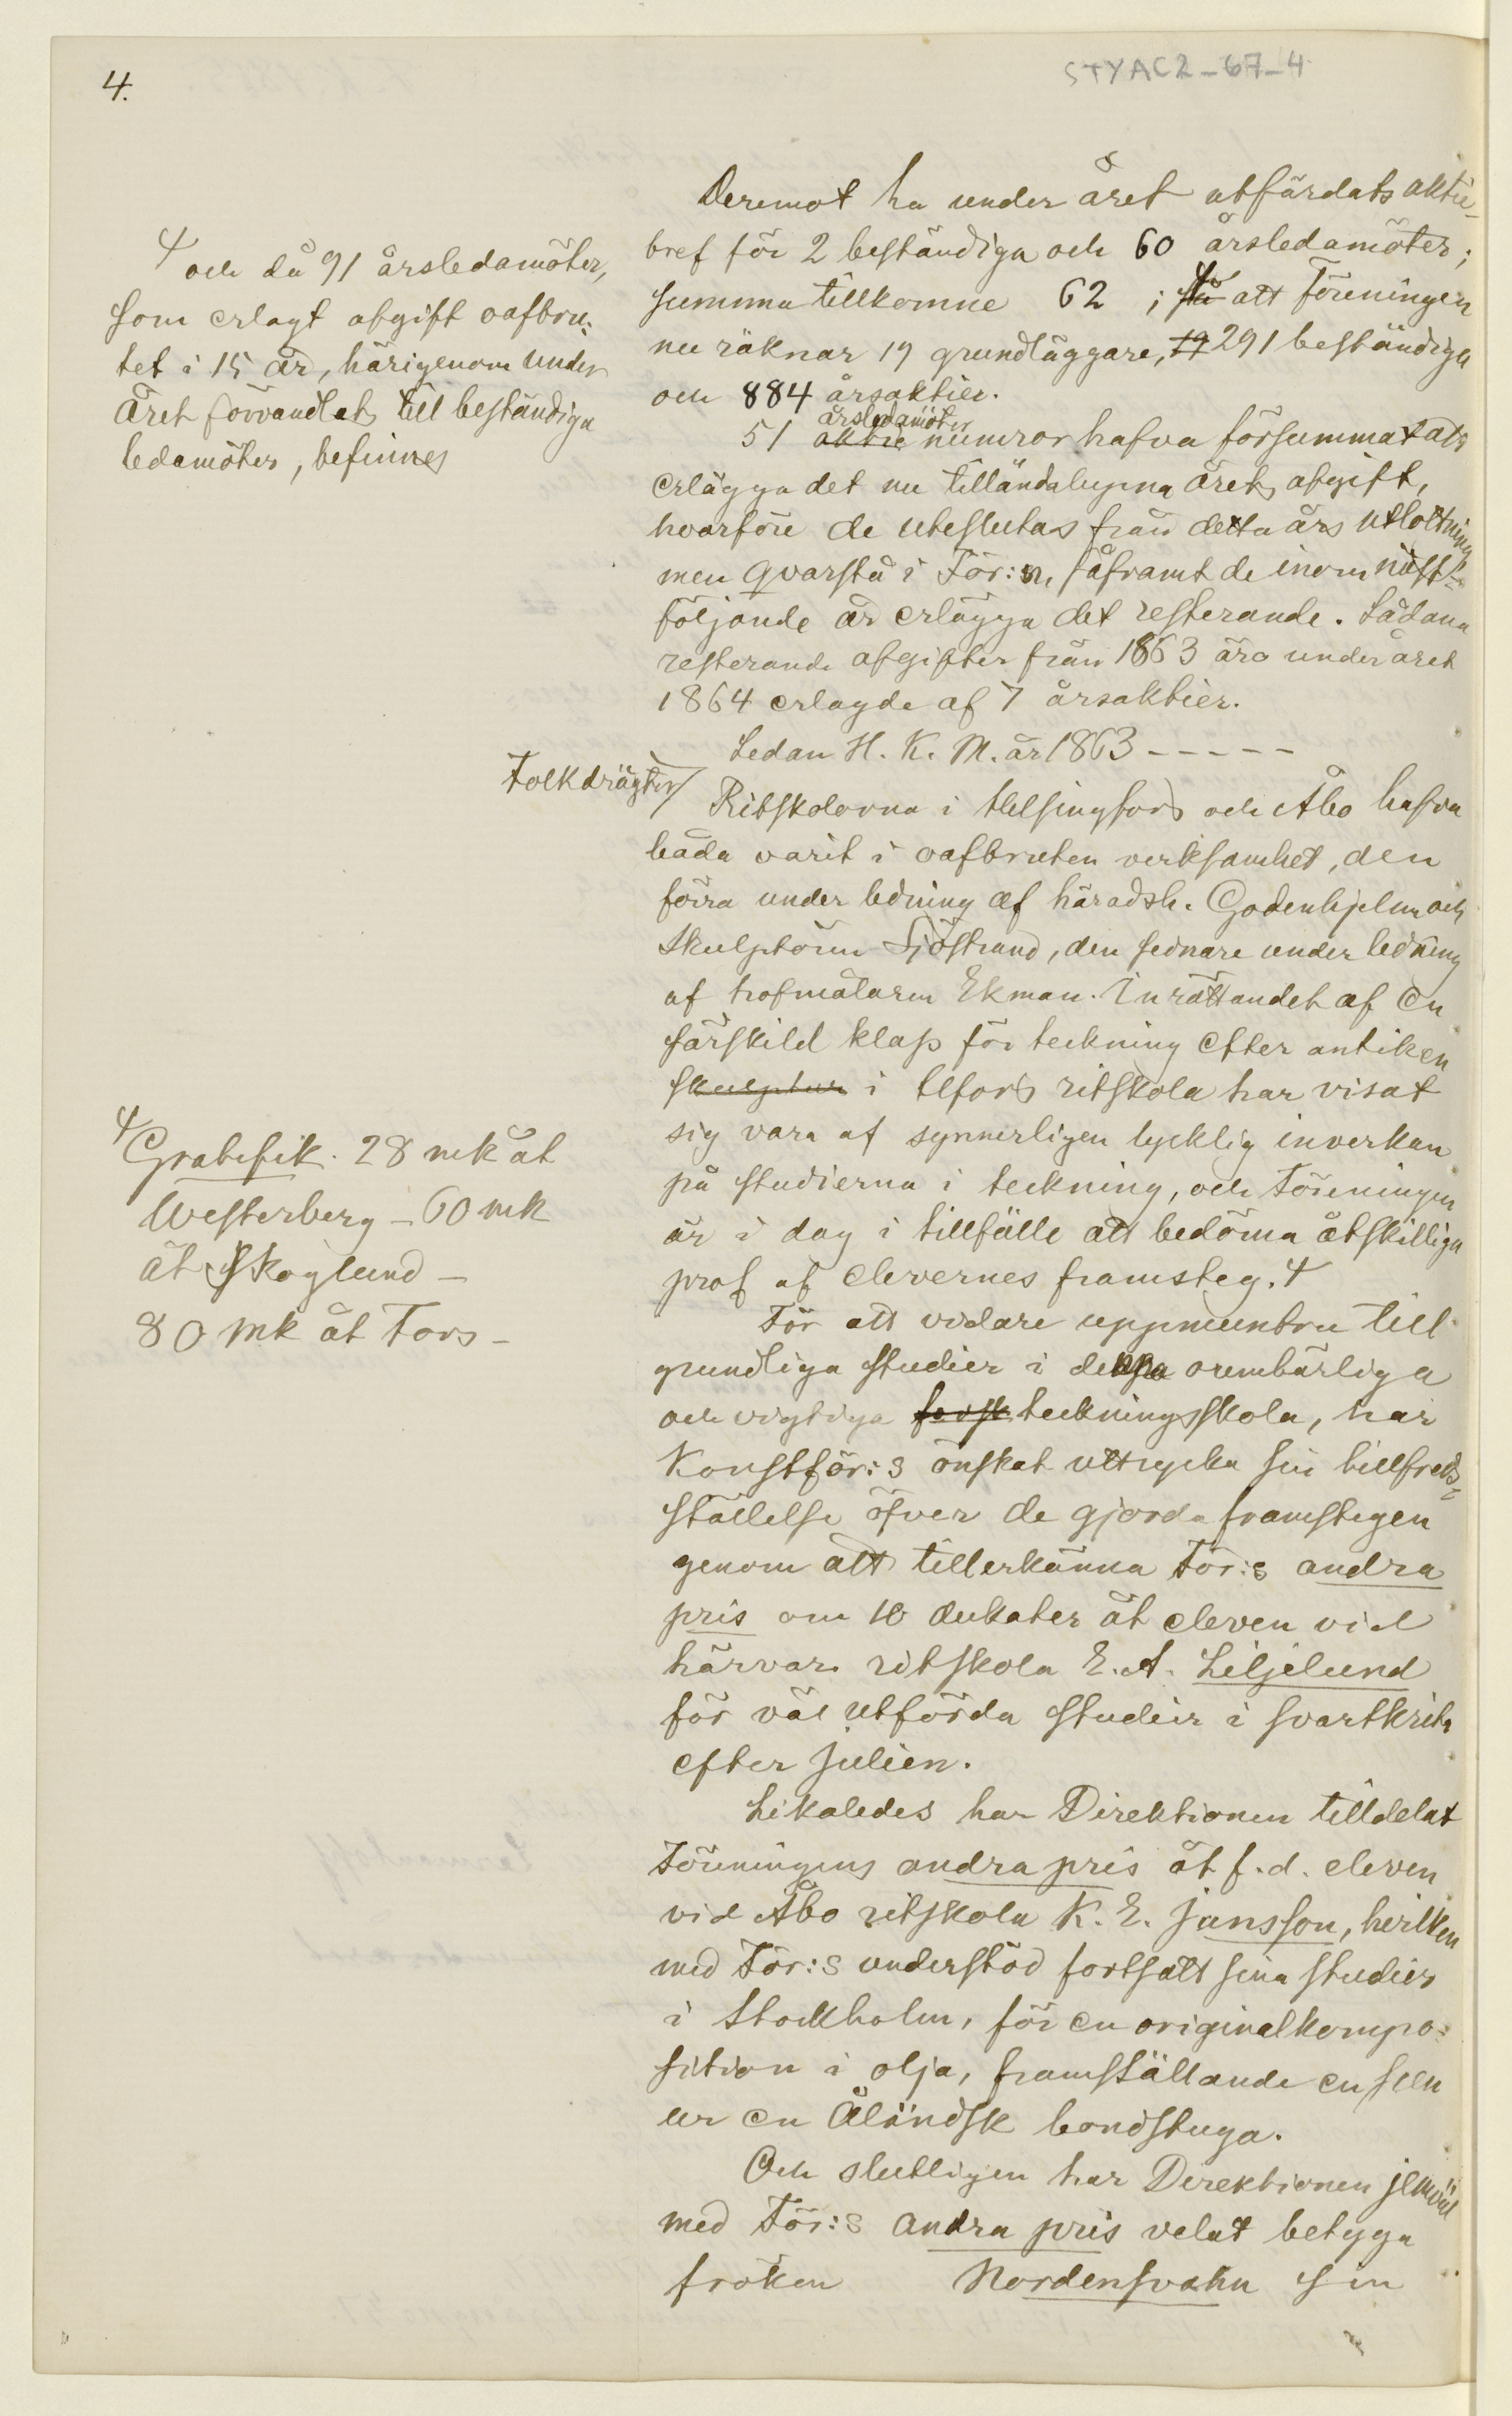 4.
STYAC2_67_4
Deremot ha under året utfärdats aktie-
bref för 2 beständiga och 60 årsledamöter;
summa tillkomne 62 ; så att Föreningen
nu räknar 19 grundläggare, 19 291 beständiga
och 884 årsaktier.
årsledamöter
51 aktie numror hafva försummat att
erlägga det nu tilländalupna årets afgift,
hvarföre de uteslutas från detta års utlottning
men qvarstå i För:n, såframt de inom näst-
följande år erlägga det resterande. Sådana
resterande afgifter från 1863 äro under året
1864 erlagde af 7 årsaktier.
Sedan H. K. M. år 1863 - - - - -
Folkdrägter
Ritskolorna i Helsingfors och Åbo hafva
båda varit i oafbruten verksamhet, den
förra under ledning af häradsh. Godenhjelm och
Skulptören Sjöstrand, den sednare under ledning
af hofmålaren Ekman. Inrättandet af en
särskild klass för teckning efter antiken
skulptur i Hfors ritskola har visat
sig vara af synnerligen lycklig inverkan
på studierna i teckning, och Föreningen
är i dag i tillfälle att bedöma åtskilliga
prof af elevernes framsteg. +
För att vidare uppmuntra till
grundliga studier i denna oumbärliga
och vigtiga försk teckningsskola, har
Konstför:s önskat uttrycka sin tillfreds-
ställelse öfver de gjorda framstegen
genom att tillerkänna För:s andra
pris om 10 dukater åt eleven vid
härvar. ritskola E. A. Liljelund
för väl utförda studier i svartkrita
efter Julien.
Likaledes har Direktionen tilldelat
Föreningens andra pris åt f.d. eleven
vid Åbo ritskola K. E. Jansson, hvilken
med För:s understöd fortsatt sina studier
i Stockholm, för en originalkompo-
sition i olja, framställande en scen
ur en Åländsk bondstuga.
Och slutligen har Direktionen jemväl
med För:s andra pris velat betyga
fröken Nordensvahn sin
+ och då 91 årsledamöter,
som erlagt afgift oafbru-
tet i 15 år, härigenom under
året förvandlats till beständiga
ledamöter, befinnes
+ Gratifik. 28 mk åt
Westerberg – 60 mk
åt Skoglund –
80 mk åt Fors –